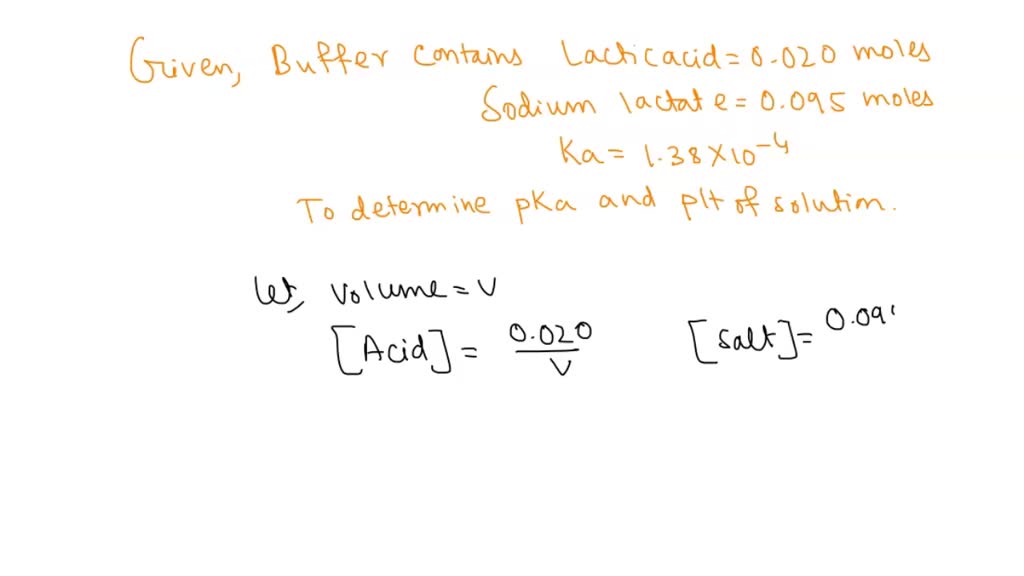 Given, Buffer contains Lactic acid = 0.020 moles
Sodium lactate = 0.095 moles
Ka = 1.38 X 10⁻⁴
To determine pKa and pH of solution.
let, volume = V
[Acid] = 0.020 / V [salt] = 0.09